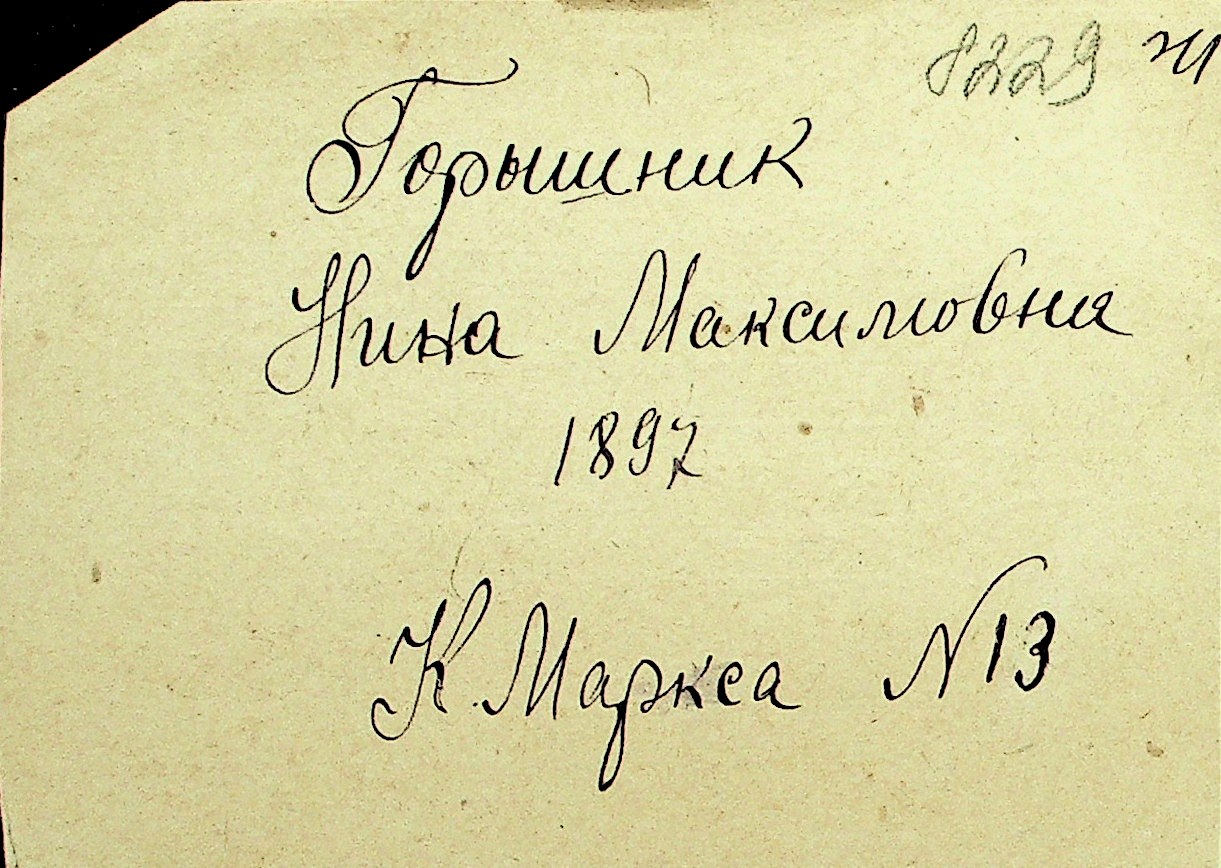 8229 ж
Горышник
Нина Максимовна
1897
К. Маркса N 13